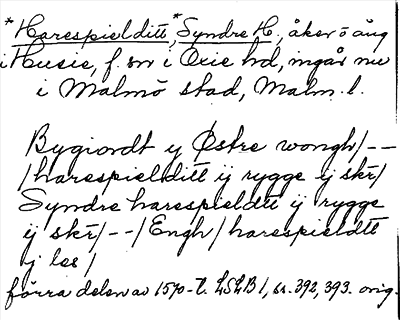 *Harespielditt, *Syndre H., åker o äng
i Husie, f. sn i Oxie hd, ingår nu
i Malmö stad, Malm. l.
Bygiordt y Østre wongh/--
/harespielditt ij rygge ij skr/
Syndre harespieldtt ij rygge
ij skr/--/Engh/harespieldtt
ij les/
förra delen av 1570-t. LSLB 1, s. 392, 393. orig.